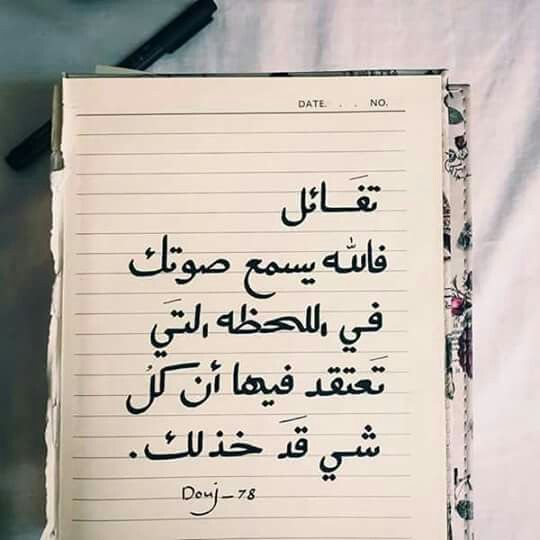 DATE. . . NO.
تفَـائل
فالله يسمع صوتك
في اللحظه التَي
تَعتقد فيها أن كلُ
شي قَد خذلك.
Douj_78